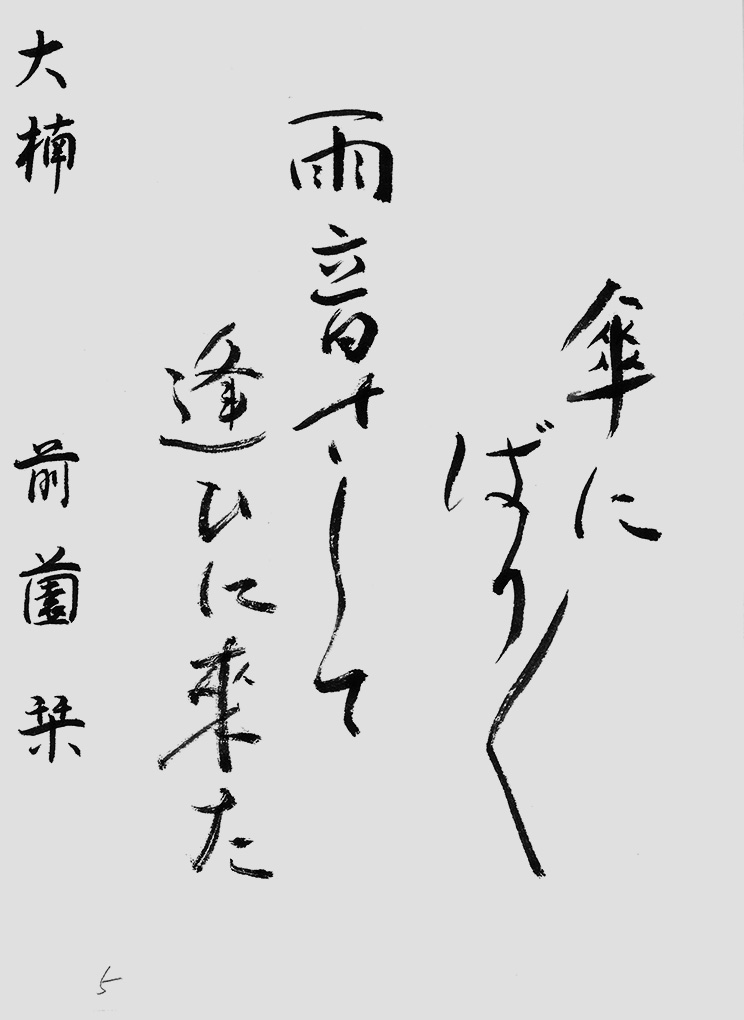 傘に
ばり〱
雨音さして
逢ひに来た
大楠　前薗栞
5